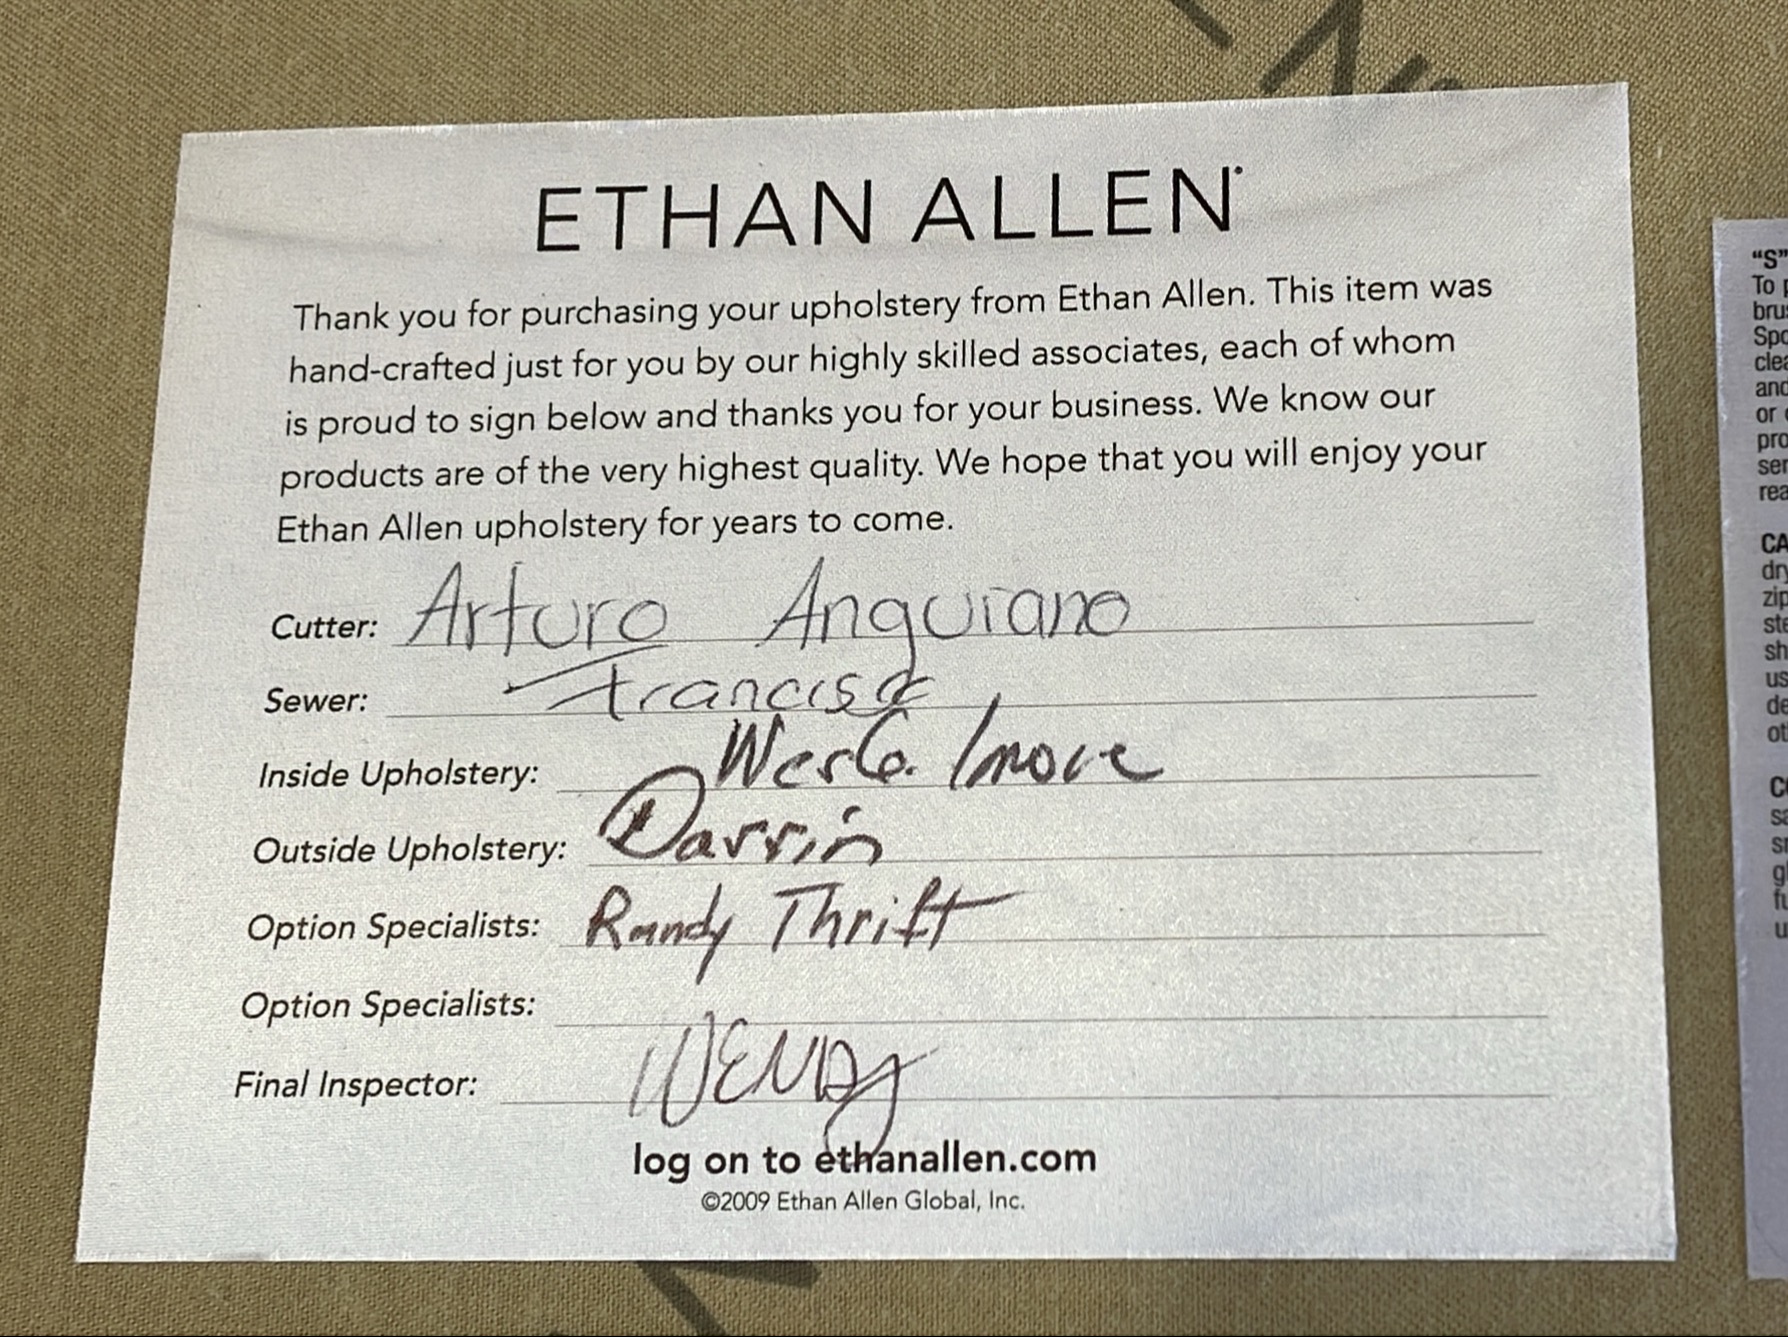 ETHAN ALLEN
Thank you for purchasing your upholstery from Ethan Allen. This item was
hand-crafted just for you by our highly skilled associates, each of whom
is proud to sign below and thanks you for your business. We know our
products are of the very highest quality. We hope that you will enjoy your
Ethan Allen upholstery for years to come.
Cutter: Arturo Anguiano
Sewer:
Inside Upholstery:
Outside Upholstery: Darrin
Option Specialists: Randy Thrift
Option Specialists:
Final Inspector: WENDy
log on to ethanallen.com
©2009 Ethan Allen Global, Inc.
"S"
To